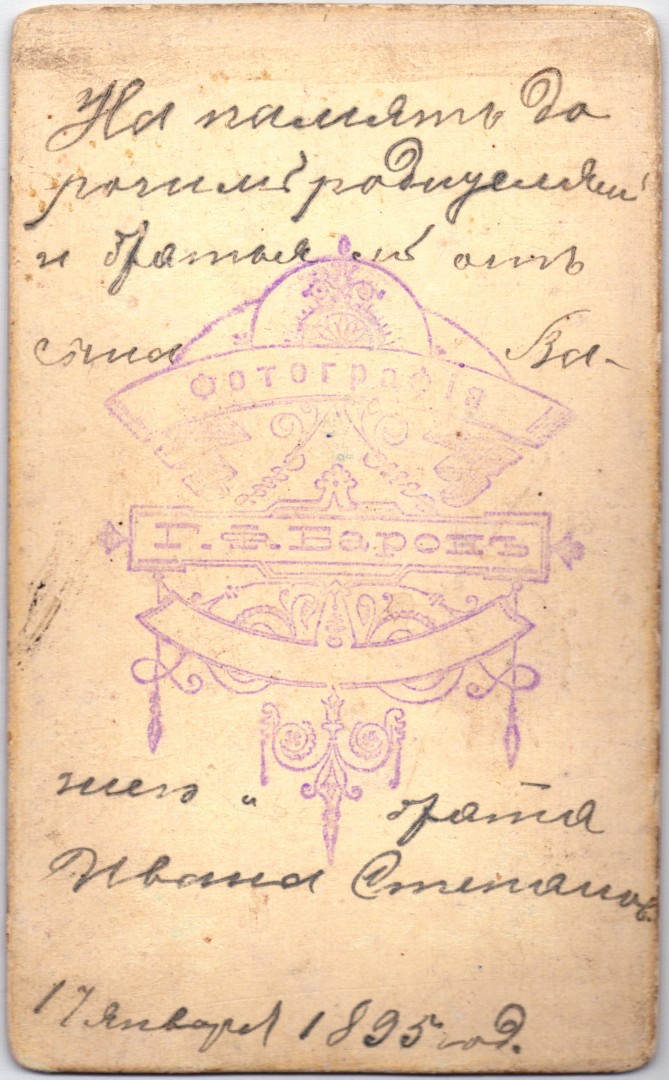 На память до
рочимъ родителямъ
и братьямъ отъ
сына Ва-
Фотографія
Г. Ф. Баронъ
шего и брата
Ивана Степанов.
17 января 1895 год.